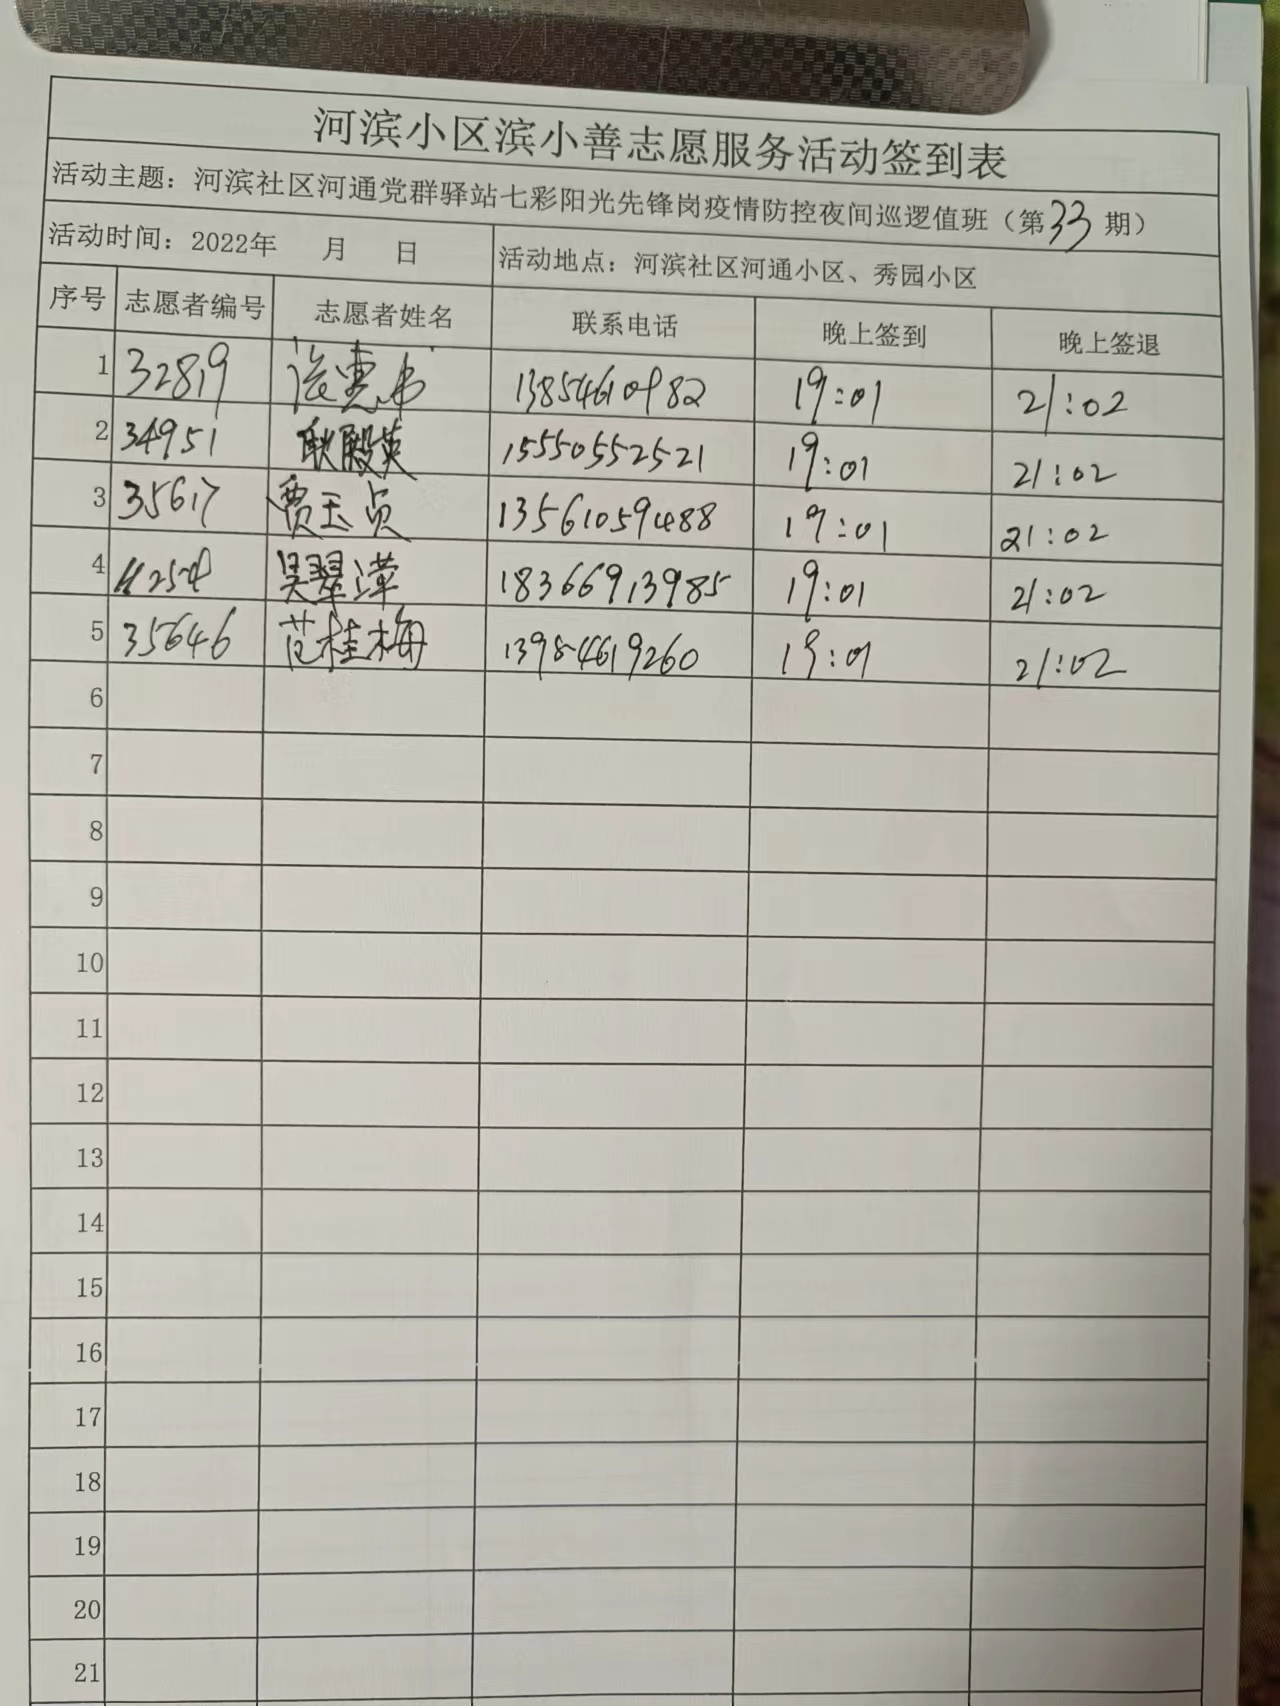 河滨小区滨小善志愿服务活动签到表
活动主题：河滨社区河通党群驿站七彩阳光先锋岗疫情防控夜间巡逻值班（第33期）
活动时间：2022年 月 日 活动地点：河滨社区河通小区、秀园小区
序号 志愿者编号 志愿者姓名 联系电话 晚上签到 晚上签退
1 32819 13854610982 19:01 21:02
2 34951 耿殿英 15550552521 19:01 21:02
3 35617 贾玉贞 13561059488 19:01 21:02
4 吴翠萍 18366913985 19:01 21:02
5 35646 范桂梅 13954619260 19:01 21:02
6
7
8
9
10
11
12
13
14
15
16
17
18
19
20
21